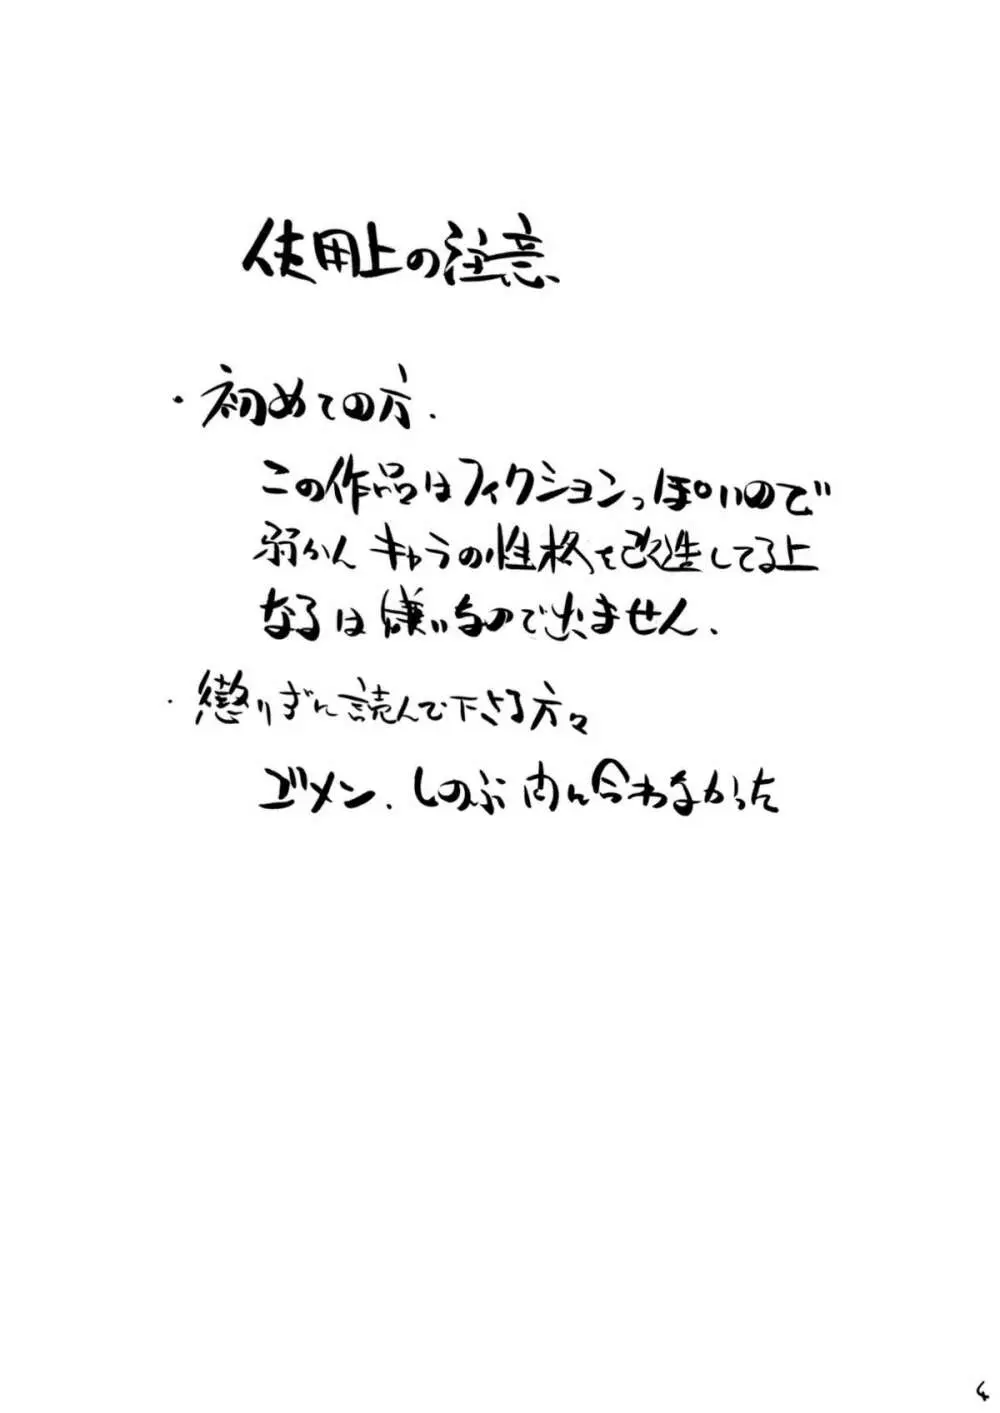 使用上の注意
・初めての方.
この作品はフィクションっぽいので
弱かん キャラの性格を改造してる上
なるは嫌いなので出ません.
・懲りずに読んで下さる方々
ゴメン、しのぶ 内に合わなかった
4